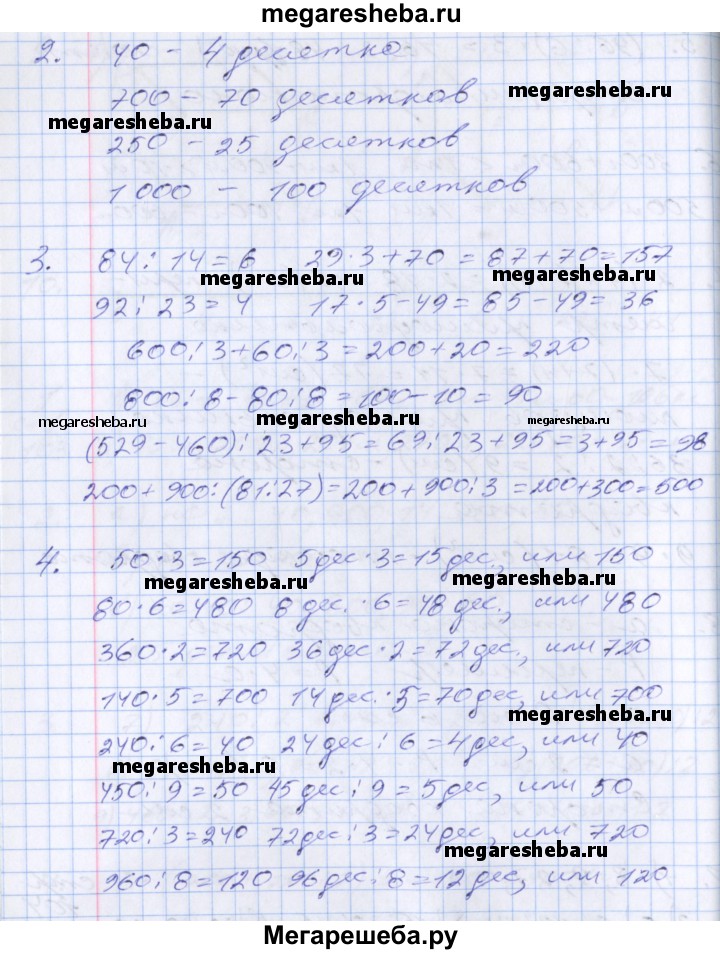 megaresheba.ru
2. 40 - 4 десятка
700 - 70 десятков
megaresheba.ru
megaresheba.ru
250 - 25 десятков
1 000 - 100 десятков
3. 84 : 14 = 6 29 · 3 + 70 = 87 + 70 = 157
megaresheba.ru
megaresheba.ru
92 : 23 = 4 17 · 5 - 49 = 85 - 49 = 36
600 : 3 + 60 : 3 = 200 + 20 = 220
800 : 8 - 80 : 8 = 100 - 10 = 90
megaresheba.ru
megaresheba.ru
megaresheba.ru
(529 - 460) : 23 + 95 = 69 : 23 + 95 = 3 + 95 = 98
200 + 900 : (81 : 27) = 200 + 900 : 3 = 200 + 300 = 500
4. 50 · 3 = 150 5 дес · 3 = 15 дес., или 150
megaresheba.ru
megaresheba.ru
80 · 6 = 480 8 дес. · 6 = 48 дес., или 480
360 · 2 = 720 36 дес · 2 = 72 дес., или 720
140 · 5 = 700 14 дес. · 5 = 70 дес, или 700
megaresheba.ru
240 : 6 = 40 24 дес : 6 = 4 дес, или 40
megaresheba.ru
450 : 9 = 50 45 дес : 9 = 5 дес, или 50
720 : 3 = 240 72 дес : 3 = 24 дес, или 720
megaresheba.ru
960 : 8 = 120 96 дес : 8 = 12 дес, или 120
Мегарешеба.ру